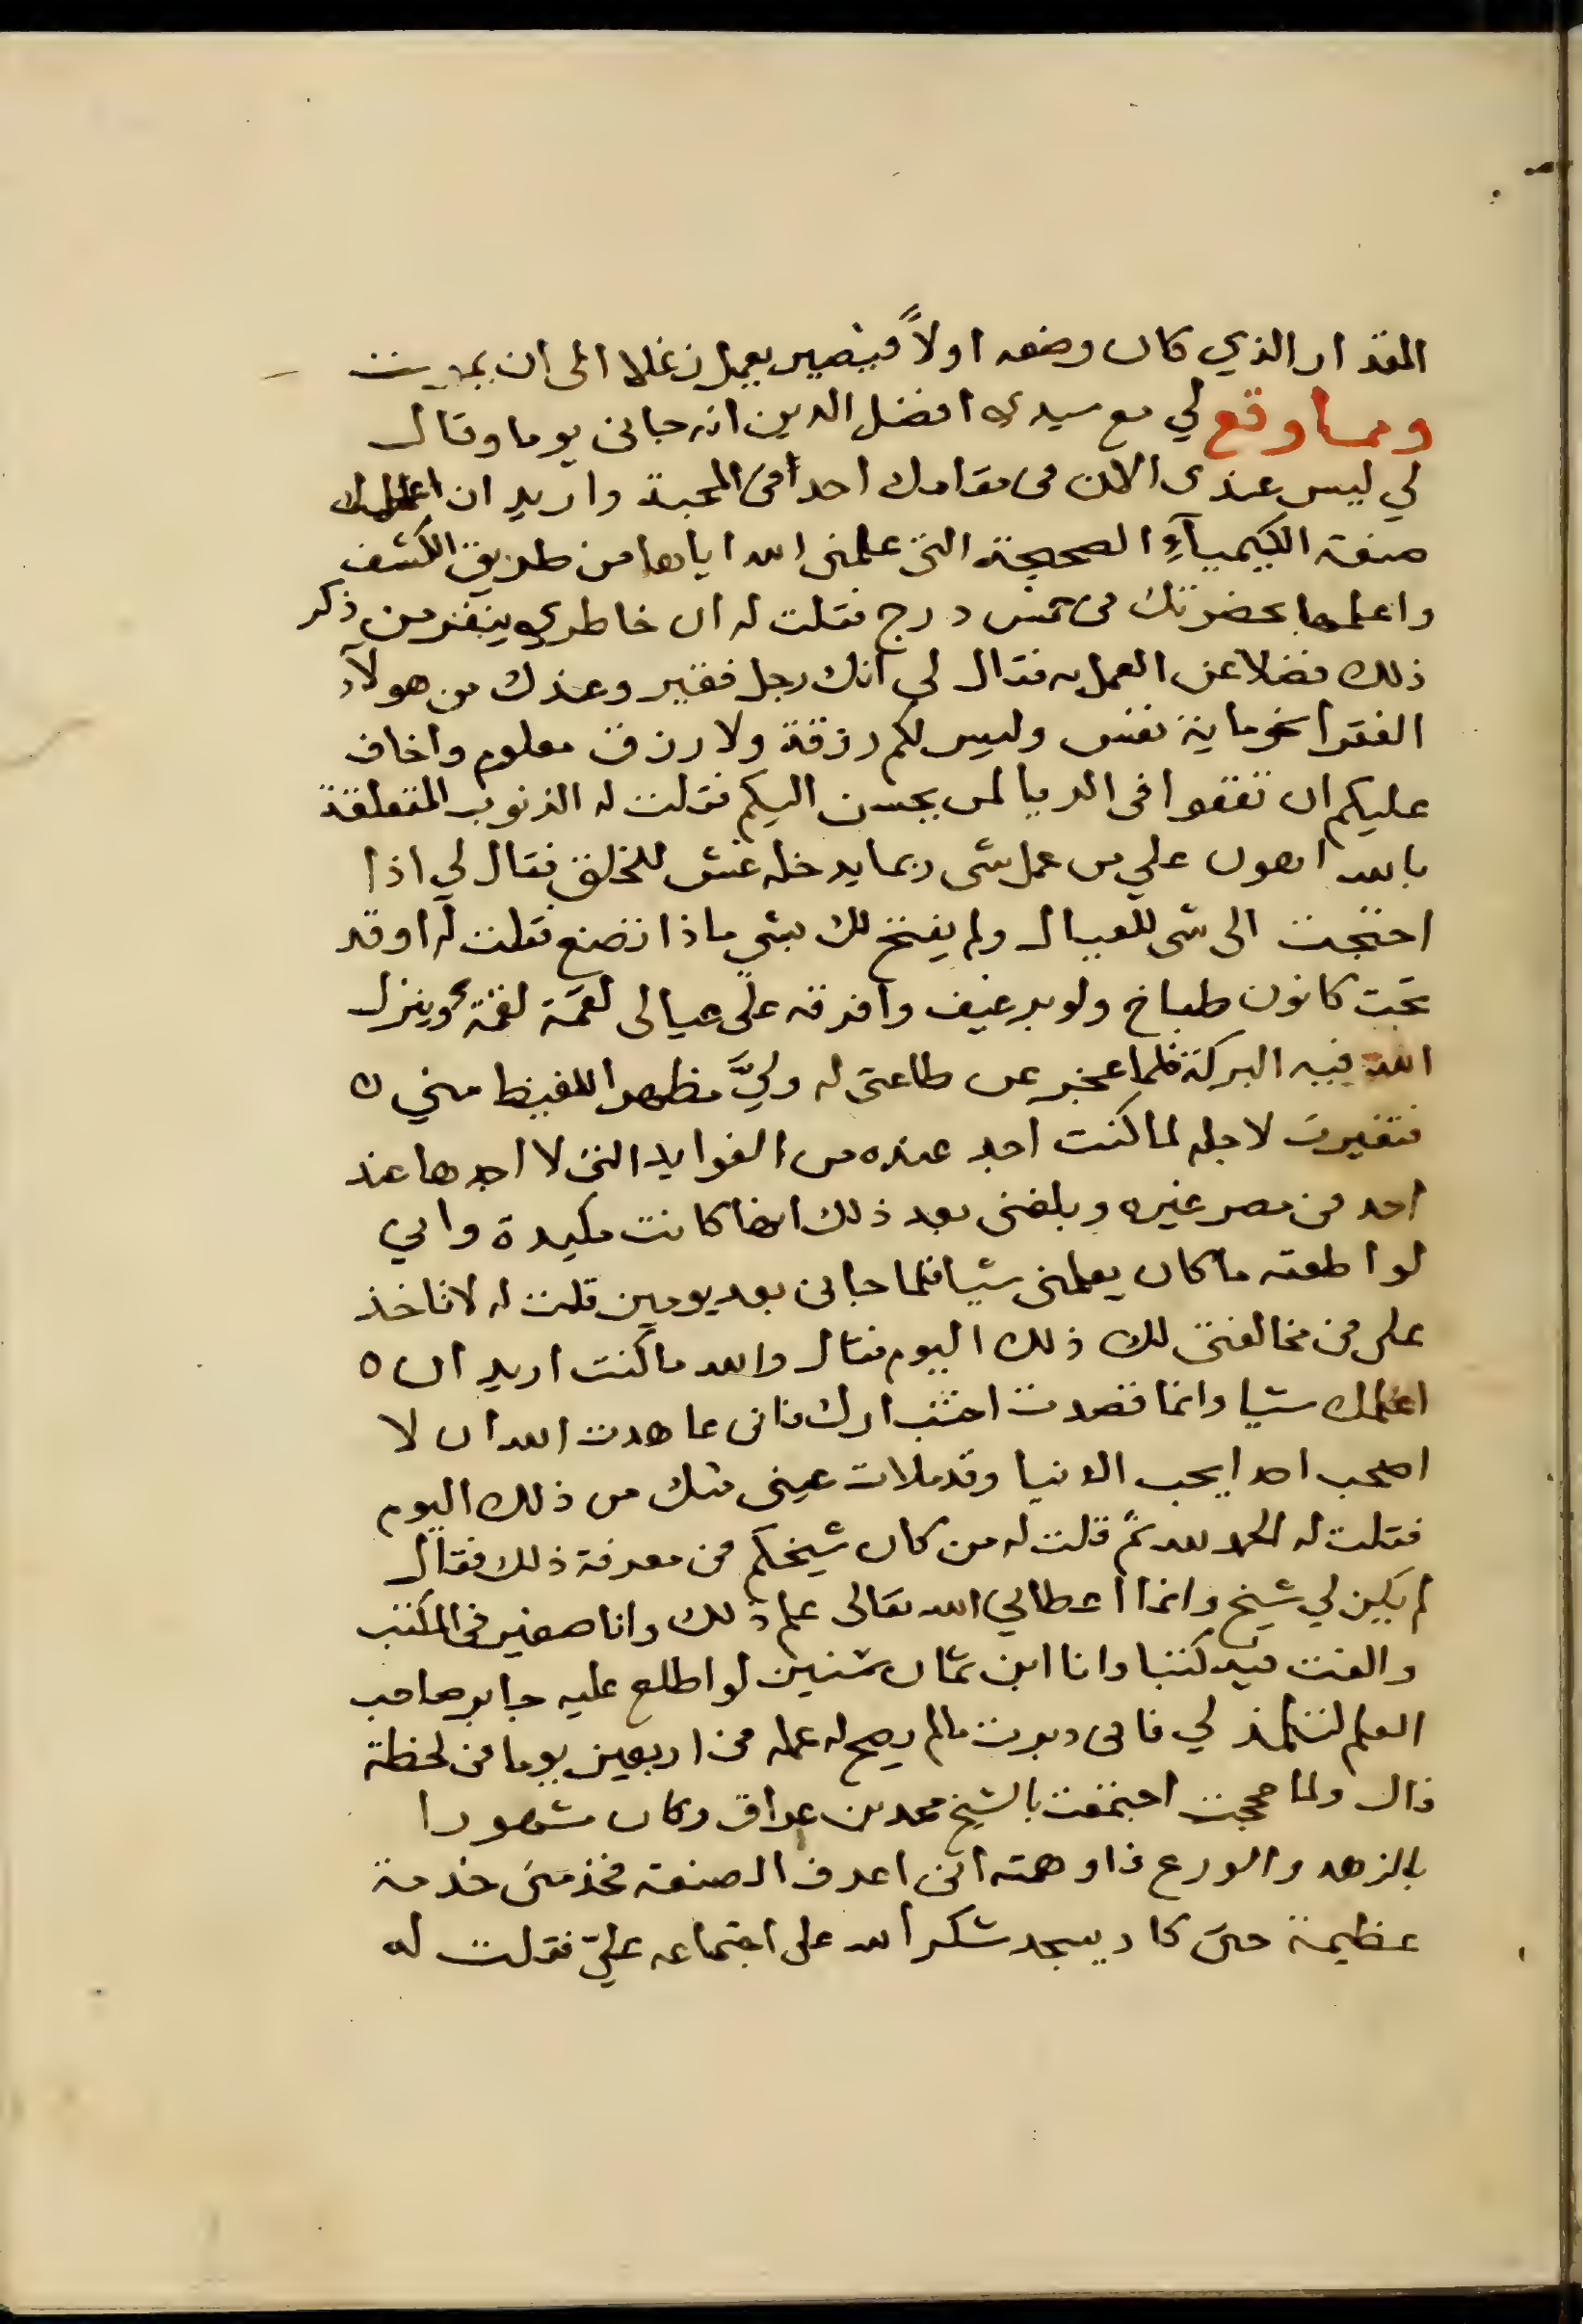 المقدار الذي كان وضعه اولاً فيصير يعمل زغلا الى ان يموت
ومما وقع لي مع سيدى افضل الدين انه جانى يوما وقال
لي ليس عندى الان فى مقامك احداً فى المحبة واريد ان اعلمك
صنعة الكيمياءِ الصحيحة التى علمنى الله اياها من طريق الكشف
واعلمها بحضرتك فى خمس درج فقلت له ان خاطرى ينفر من ذكر
ذلك فضلا عن العمل به فقال لى انك رجل فقير وعندك من هولآء
الفقرا نحو ماية نفس وليس لكم رزقة ولا رزق معلوم واخاف
عليكم ان تقعوا فى الريا لمن يحسن اليكم فقلت له الذنوب المتعلقة
بالله اهون علي من عمل شى ربما يدخله غش للخلق فقال لي اذا
احتجت الى شى للعيال ولم يفتح لك بشي ماذا تصنع فقلت له اوقد
تحت كانون طباخ ولو برغيف وافرقه على عيالى لقمة لقمة وينزل
الله فيه البركة فلما عجز عن طاعتى له ولَّى مظهرا للغيظ منى ه
فتغيرت لاجله لما كنت اجد عنده من الفوايد التى لا اجدها عند
احد فى مصر غيره وبلغنى بعد ذلك انها كانت مكيدة واني
لو اطعته ما كان يعلمنى شيا فلما جانى بعد يومين قلت له لا تاخذ
على فى مخالفتى لك ذلك اليوم فقال والله ما كنت اريد ان ه
اعلمك شيا وانما قصدت اختبارك فانى عاهدت الله ان لا
اصحب احدا يحب الدنيا وقد ملات عينى منك من ذلك اليوم
فقلت له الحمد لله ثم قلت له من كان شيخكم فى معرفة ذلك فقال
لم يكن لي شيخ وانما اعطاني الله تعالى علم ذلك وانا صغير فى المكتب
والفت فيه كتبا وانا ابن ثمان سنين لو اطلع عليه جابر صاحب
العلم لتتلمذ لي فانى دبرت مالم يصح له عمله فى اربعين يوما فى لحظة
قال ولما حججت اجتمعت بالشيخ محمد بن عراق وكان مشهورا
بالزهد والورع فاوهمته انى اعرف الصنعة فخدمنى خدمة
عظيمة حتى كاد يسجد شكراً لله على اجتماعه عليّ فقلت له